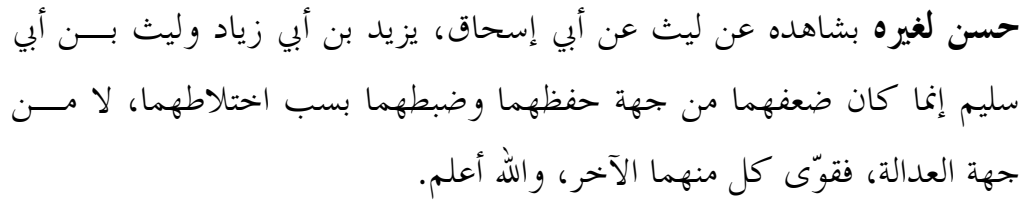 حسن لغيره بشاهده عن ليث عن أبي إسحاق، يزيد بن أبي زياد وليث بـــن أبي
سليم إنما كان ضعفهما من جهة حفظهما وضبطهما بسب اختلاطهما، لا مـــن
جهة العدالة، فقوّى كل منهما الآخر، والله أعلم.